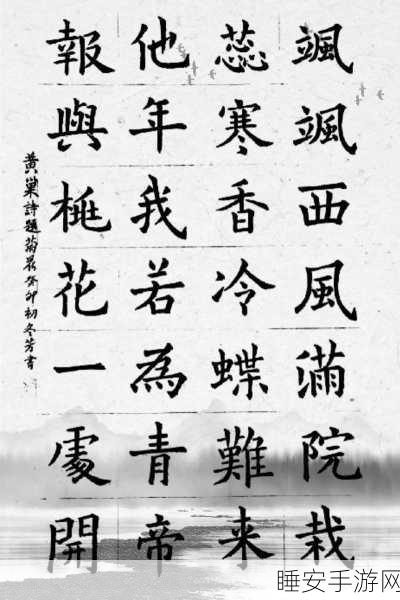 颯颯西風滿院栽
蕊寒香冷蝶難来
他年我若為青帝
報與桃花一處開
黄巢詩題菊癸卯初冬芳書
睡安手游网